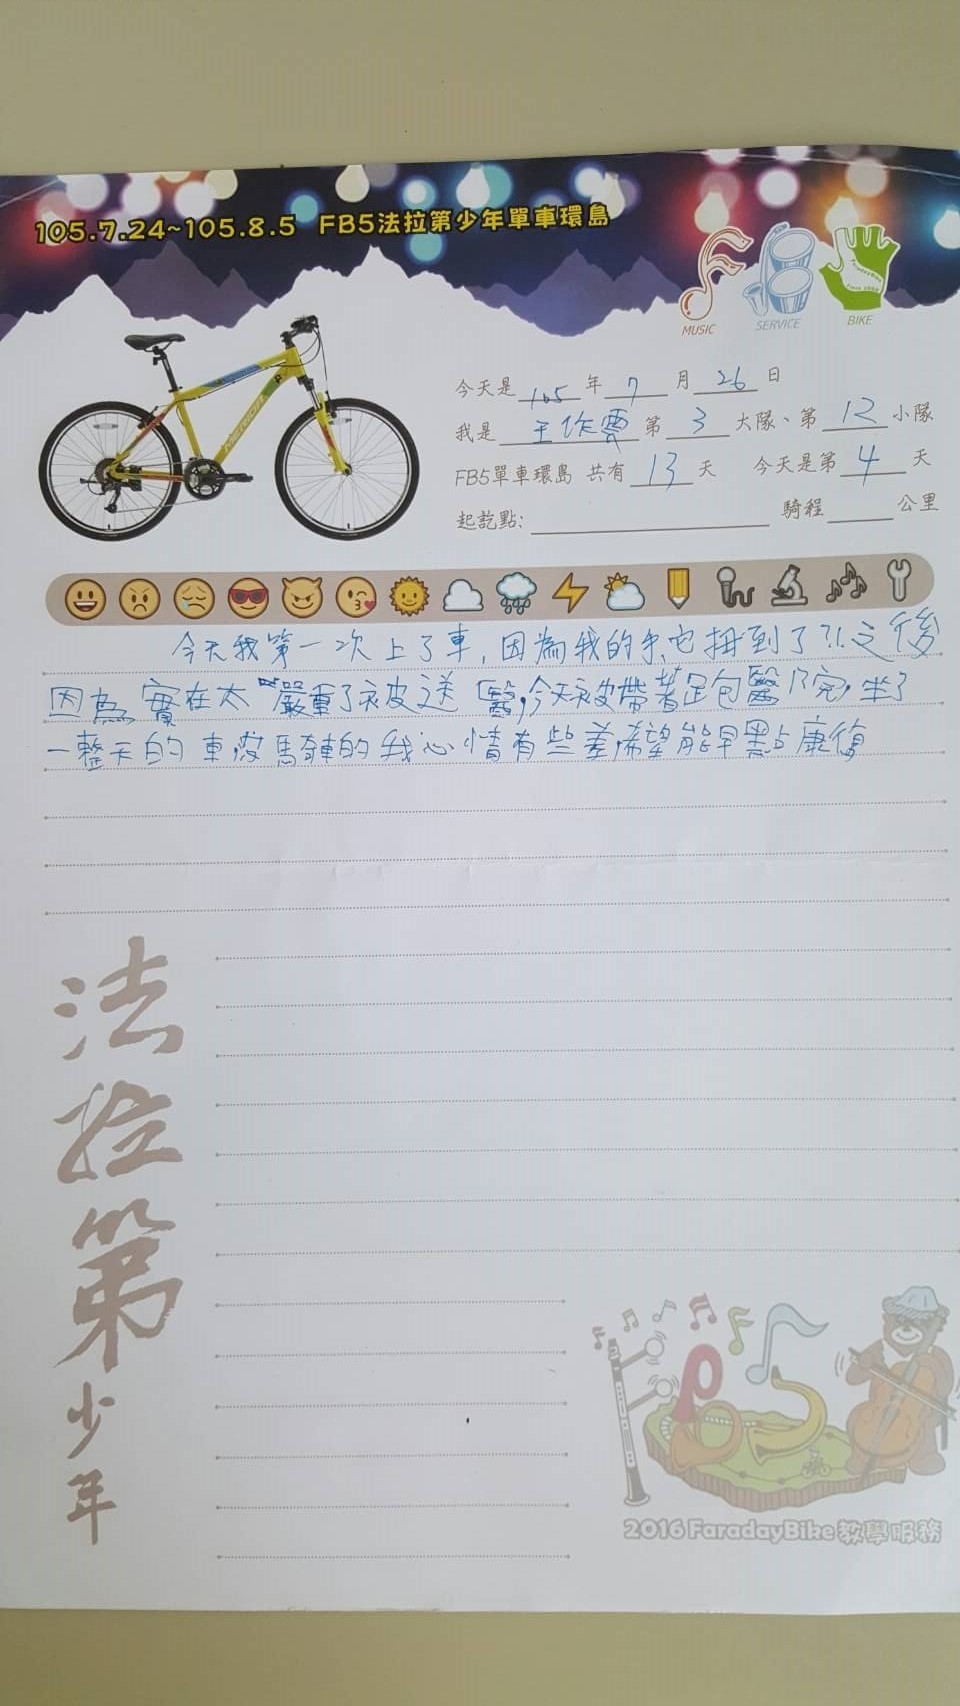 105.7.24~105.8.5 FB5法拉第少年單車環島
MUSIC
SERVICE
BIKE
今天是 105 年 7 月 26 日
我是 王作雲 第 3 大隊、第 12 小隊
FB5單車環島 共有 13 天 今天是第 4 天
起訖點: 騎程 公里
今天我第一次上了車,因為我的手也扭到了?!.之後
因為實在太"嚴重了被送醫,今天被帶著足包醫院,坐了
一整天的車沒騎車的我心情有些差希望能早點康復
法拉第少年
2016 FaradayBike 教學服務